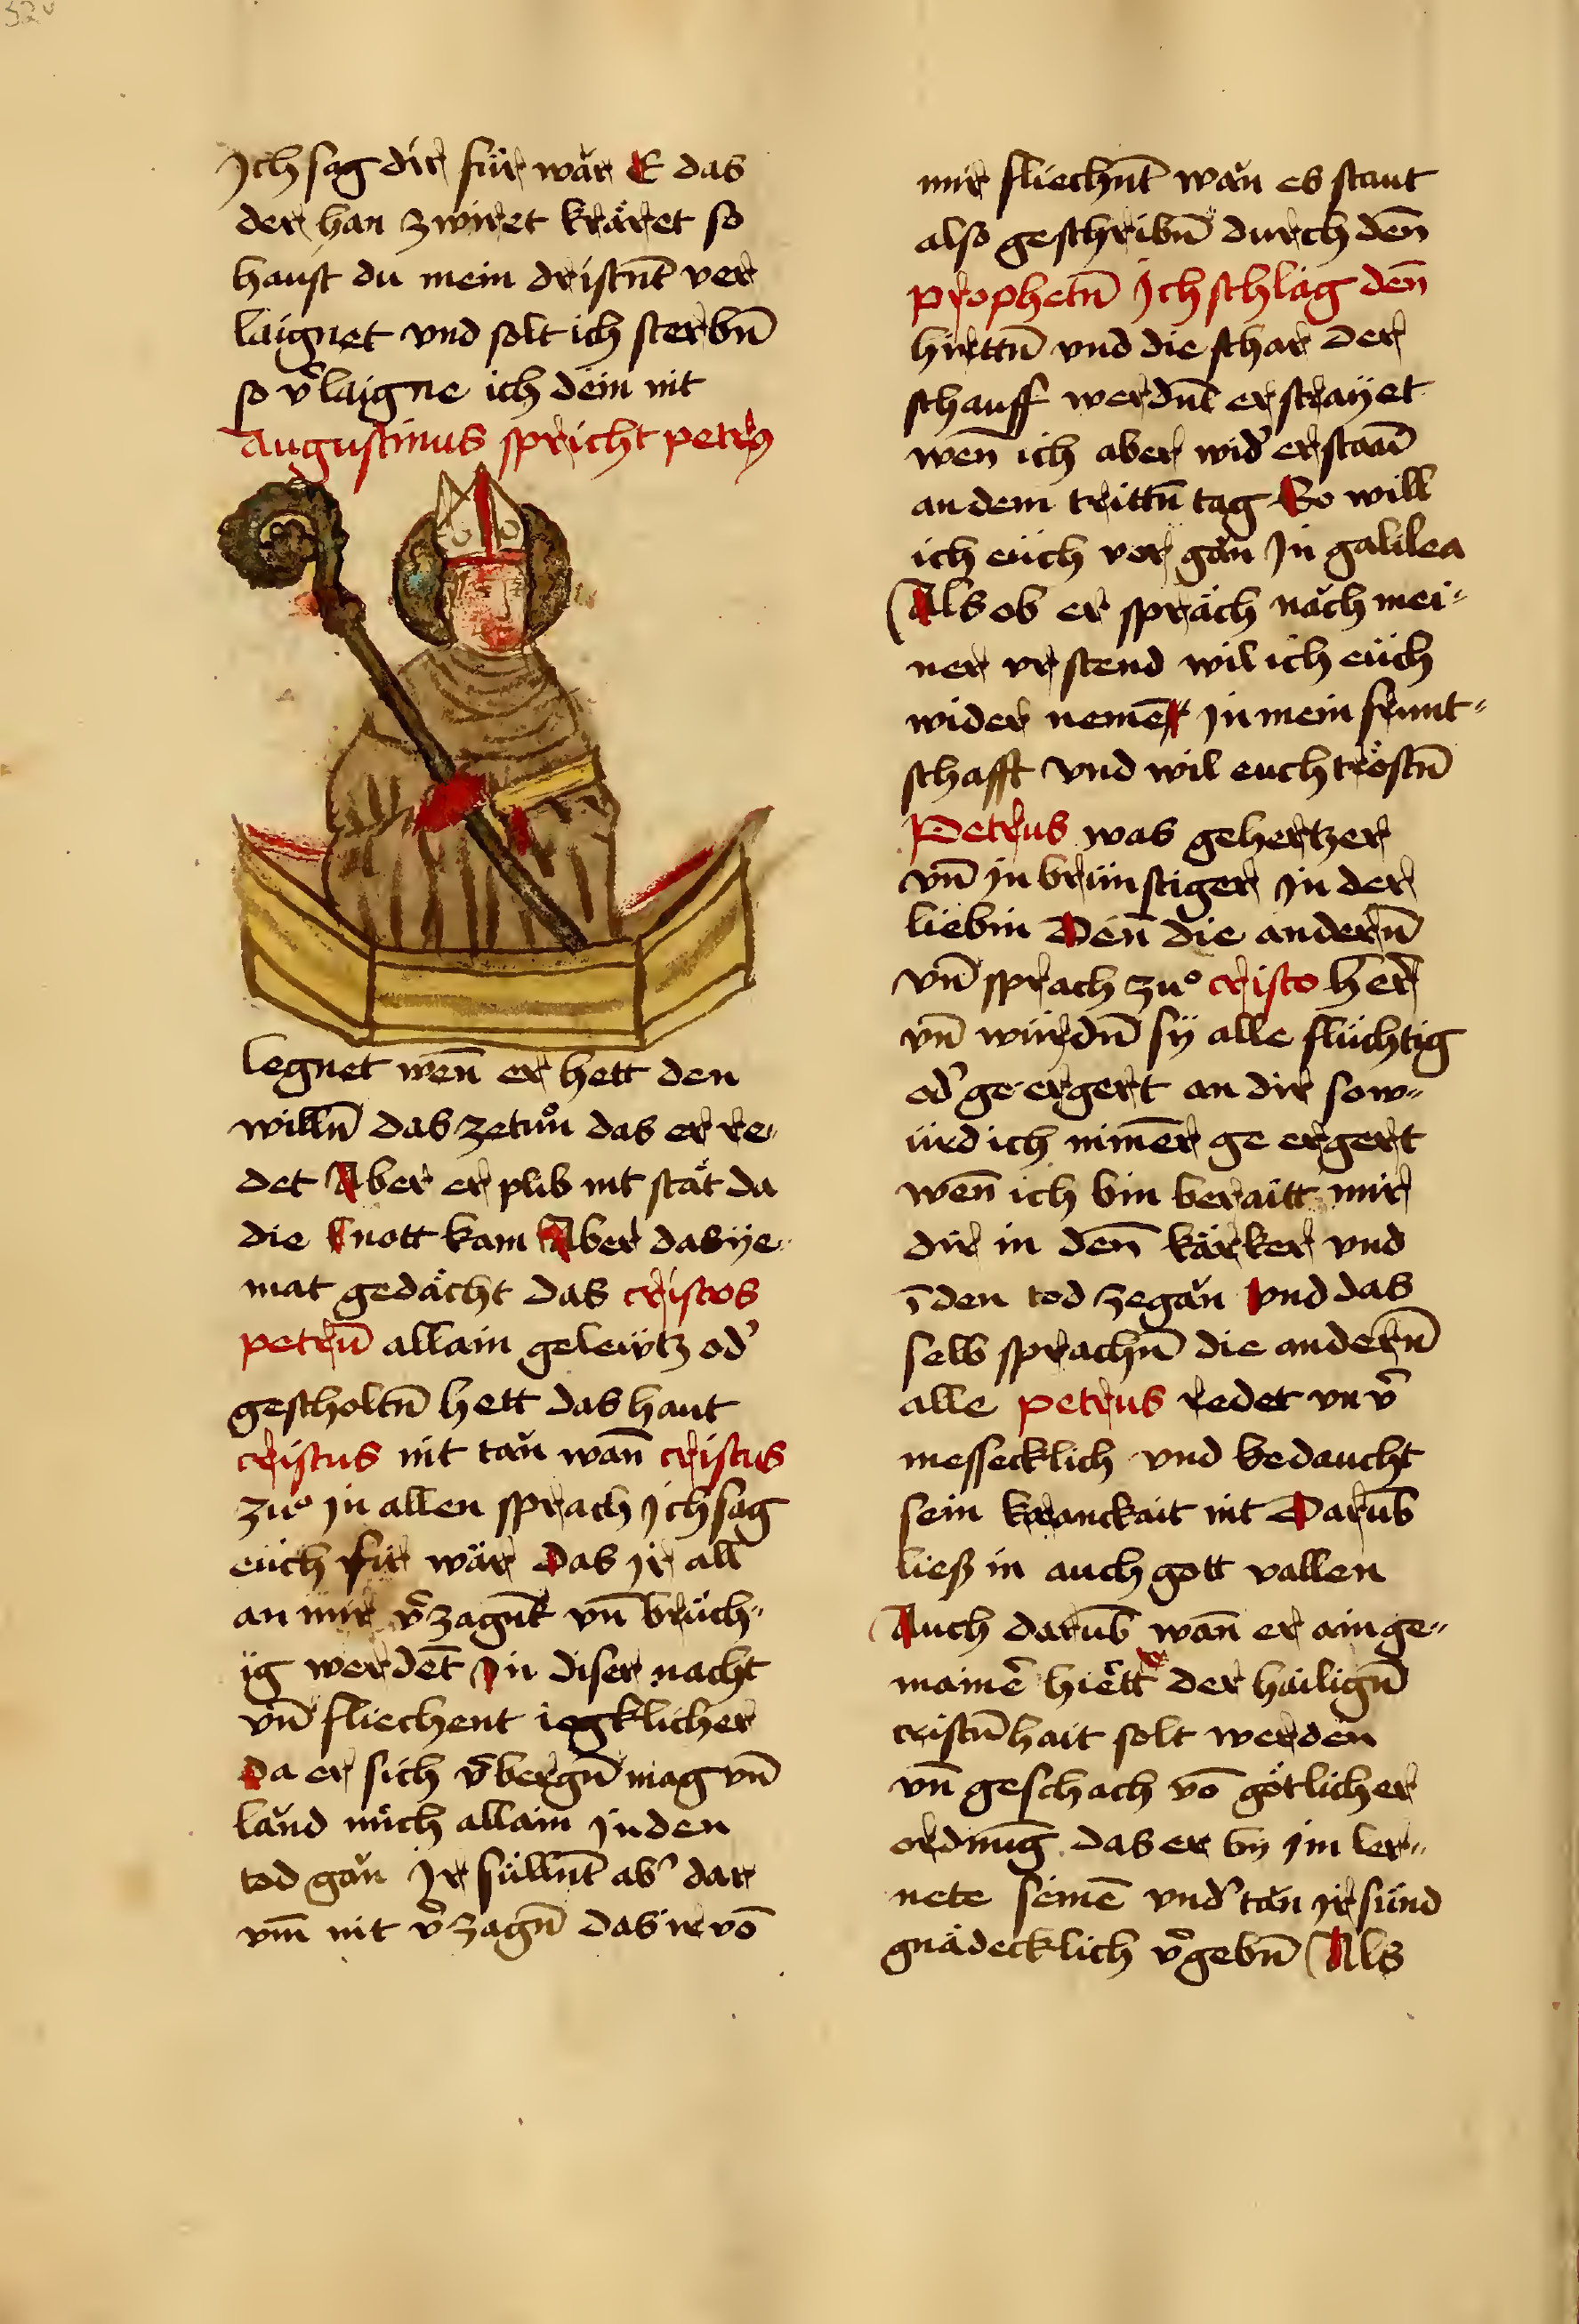 52v
Ich sag dir für wǎr E das
der han zwiret kräret so
haust du mein dristn̄t ver
laignet vnd solt ich sterbn̄
so v̄laigne ich dein nit
Augustinus spricht petrꝰ
legnet wen̄ er hett den
willn̄ das zetuͦn das er re„
det Aber er plib nit stät da
die nott kam Aber das ÿe„
mat gedächt das cristos
petrn̄ allain geleẅtz od'
gescholtn̄ hett das haut
cristus nit taǔ wan̄ cristus
zuͦ in allen sprach Ich sag
eüch für wär das ir all
an mir v̄zagn̄t vn̄ brüch„
ig werdēt In diser nacht
vn̄ fliechent iegklicher
Da er sich v̄bergn̄ mag vn̄
lǎnd mich allain in den
tod gǎn Ir süllnt̄ ab' dar
vm̄ nit v̄zagn̄ das ir vō
mir fliechnt̄ wǎn es staut
also geschribn̄ durch den̄
prophetn̄ Ich schlag den̄
hirttn̄ vnd die schar der
schauff werdnt̄ erstraÿet
wen̄ ich aber wid' erstan̄
an dem trittn̄ tag So will
ich eüch vor gǎn In galilea
Als ob er spräch nǎch mei„
ner vrstend wil ich eüch
wider nemē in mein frunt„
schafft vnd wil euch tröstn̄
Petrus was gehertzer
vn̄ in brünstiger in der
liebin Den̄ die andern̄
vn̄ sprach zuͦ cristo her
vn̄ würdn̄ sÿ alle flüchtig
od' ge ergert an dir so w„
ürd ich nimer̄ ge ergert
wen̄ ich bin beraitt mir
dir in den̄ kärker vnd
ī den tod zegǎn vnd das
selb sprachn̄ die andern̄
alle petrus redet vn v̄
messecklich vnd bedaucht
sein kranckait nit Darub̄
ließ in auch gott vallen
Auch darub̄ wan̄ er ain ge„
mainē hiētt der hailign̄
cristn̄hait solt werden
vn̄ geschach vō götlicher
ordnūg das er bÿ im ler„
nete seinē vnd'tǎn ir sünd
gnädecklich v̄gebn̄ Als